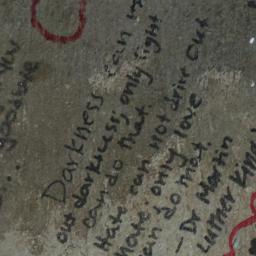 you
goodbye
Darkness can not
out darkness, only light
can do that
Hate can not drive out
hate. only love
can do that
- Dr Martin
Luther King